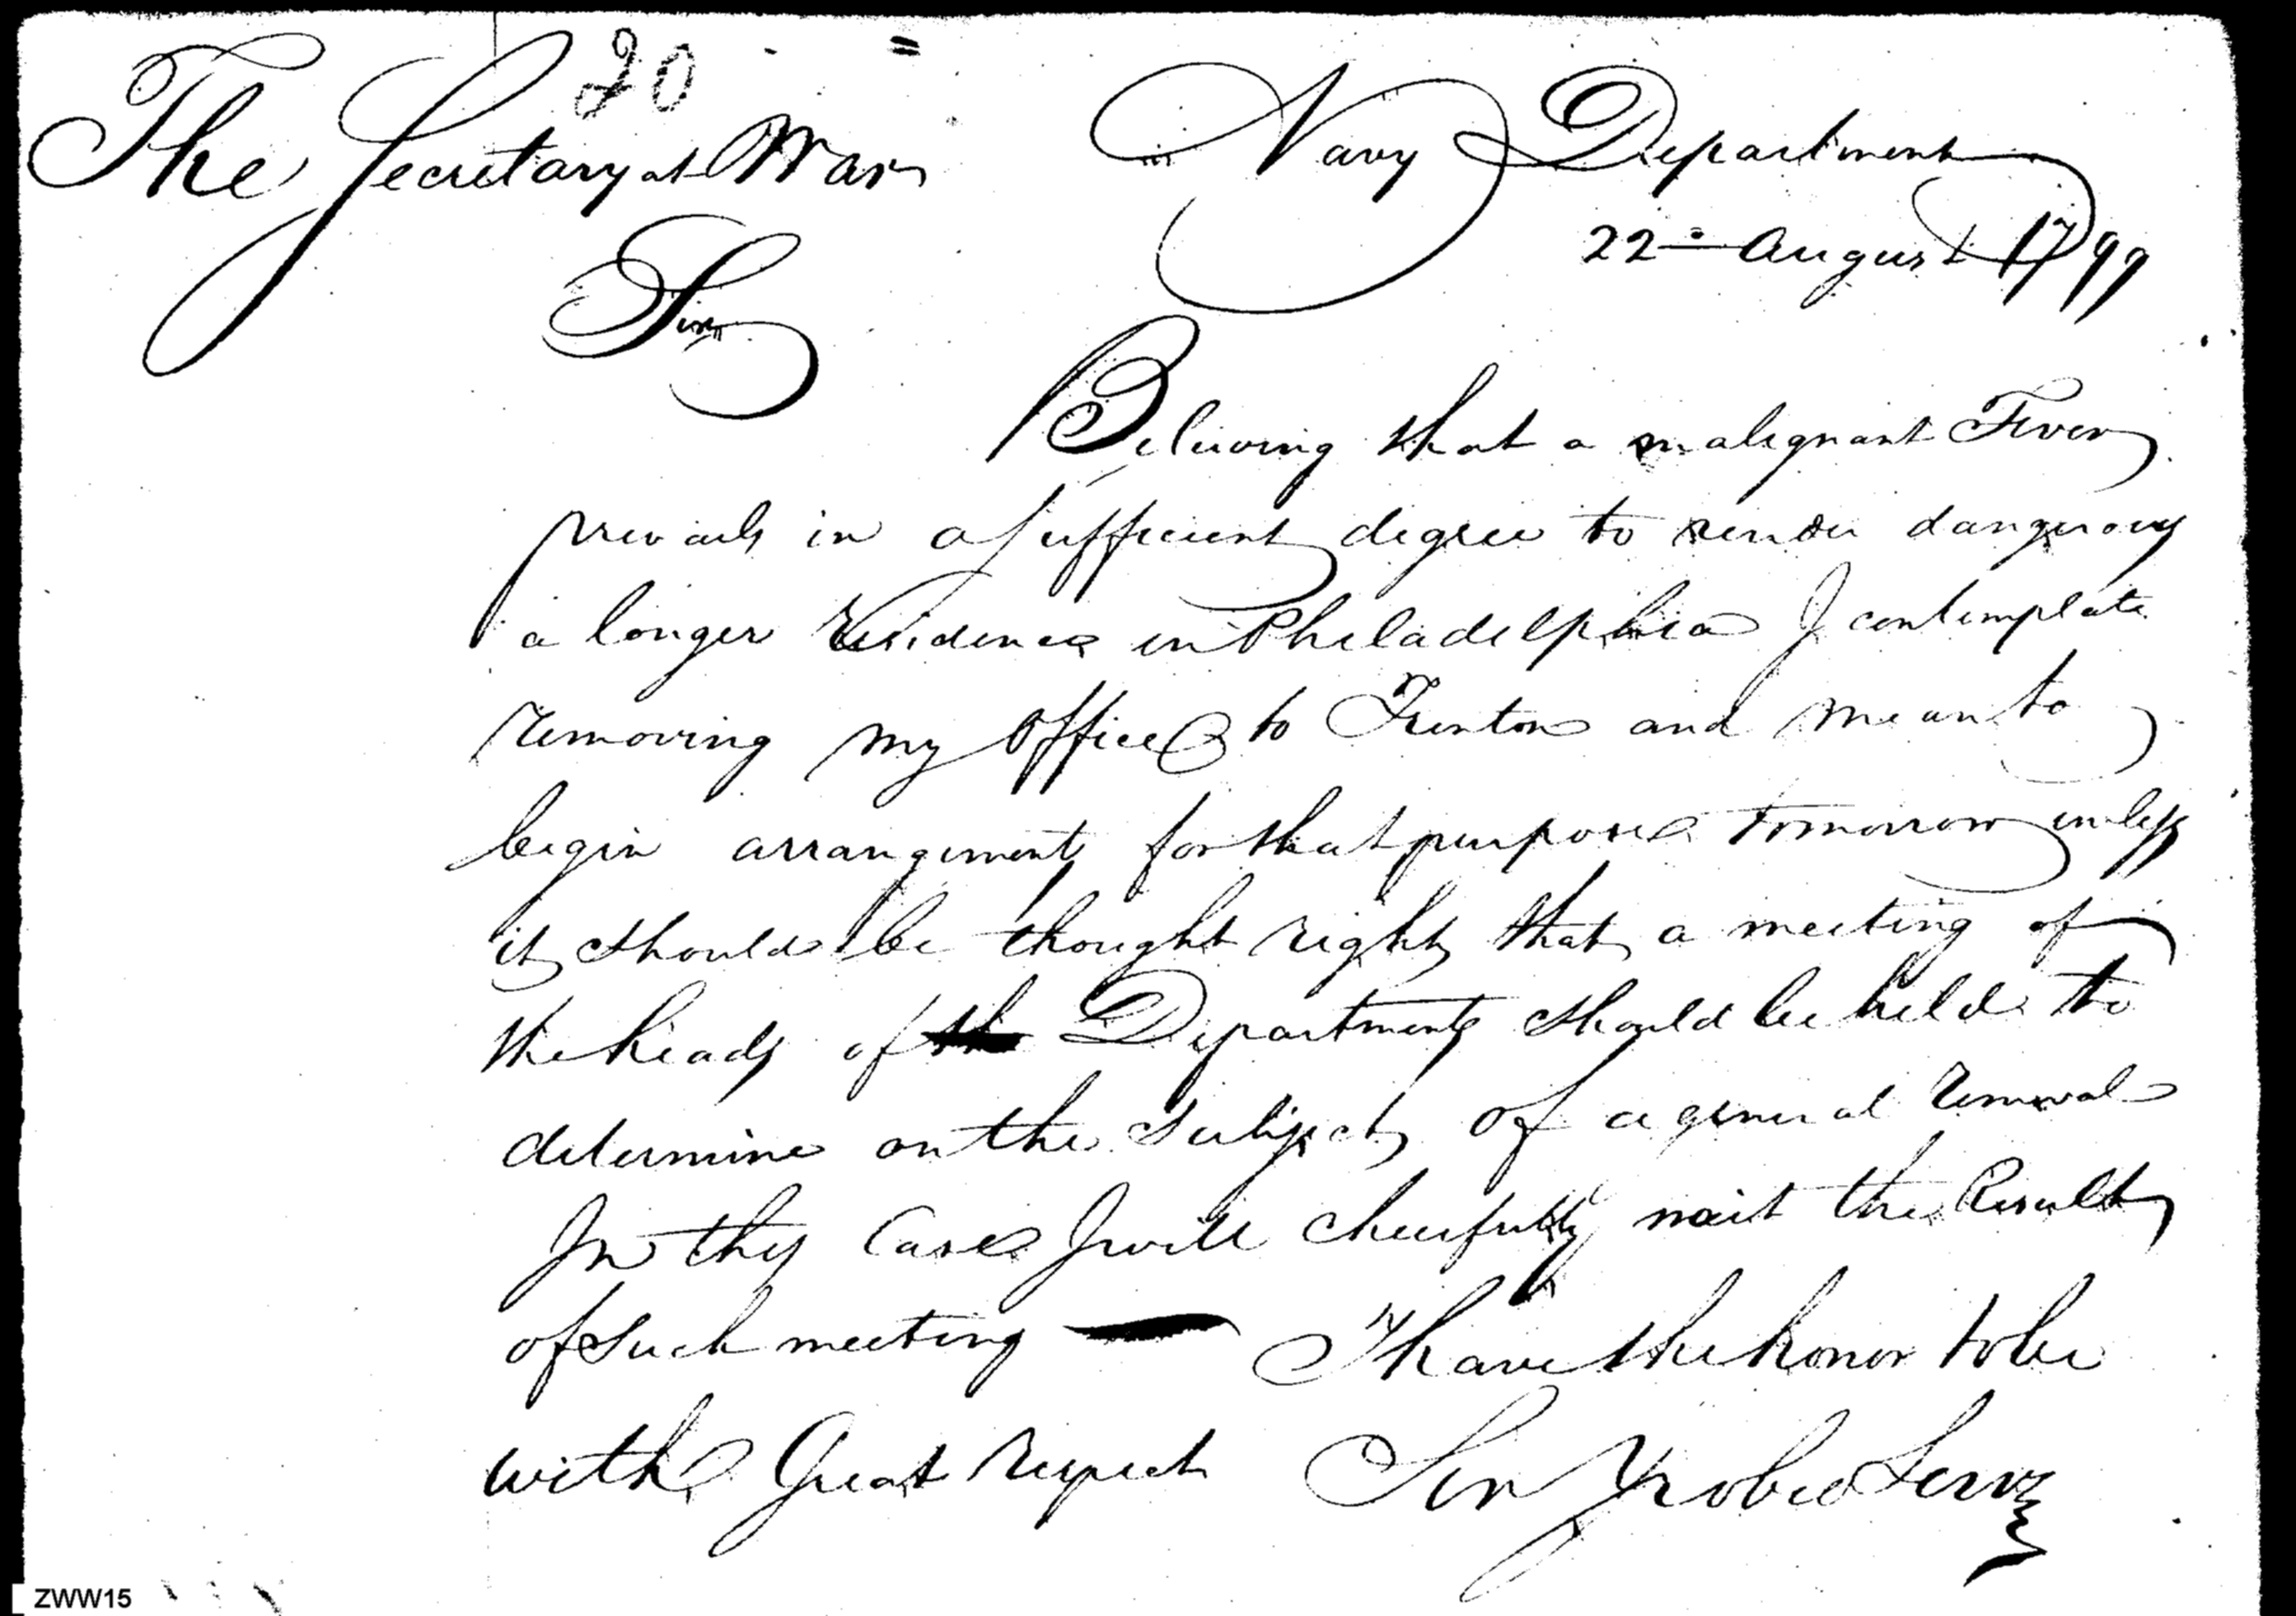 20
The Secretary at War
Navy Department
22 August 1799
Sir
Believing that a malignant Fever
prevails in a sufficient degree to render dangerous
a longer Residence in Philadelphia I contemplate
removing my Office to Trenton and mean to
begin arrangements for that purpose tomorrow unless
it should be thought right that a meeting of
the heads of the Departments should be held to
determine on the subject of a general removal
In this Case I will cheerfully wait the Result
of such meeting — I have the honor to be
with Great respect Sir Yr obed Serv
ZWW15